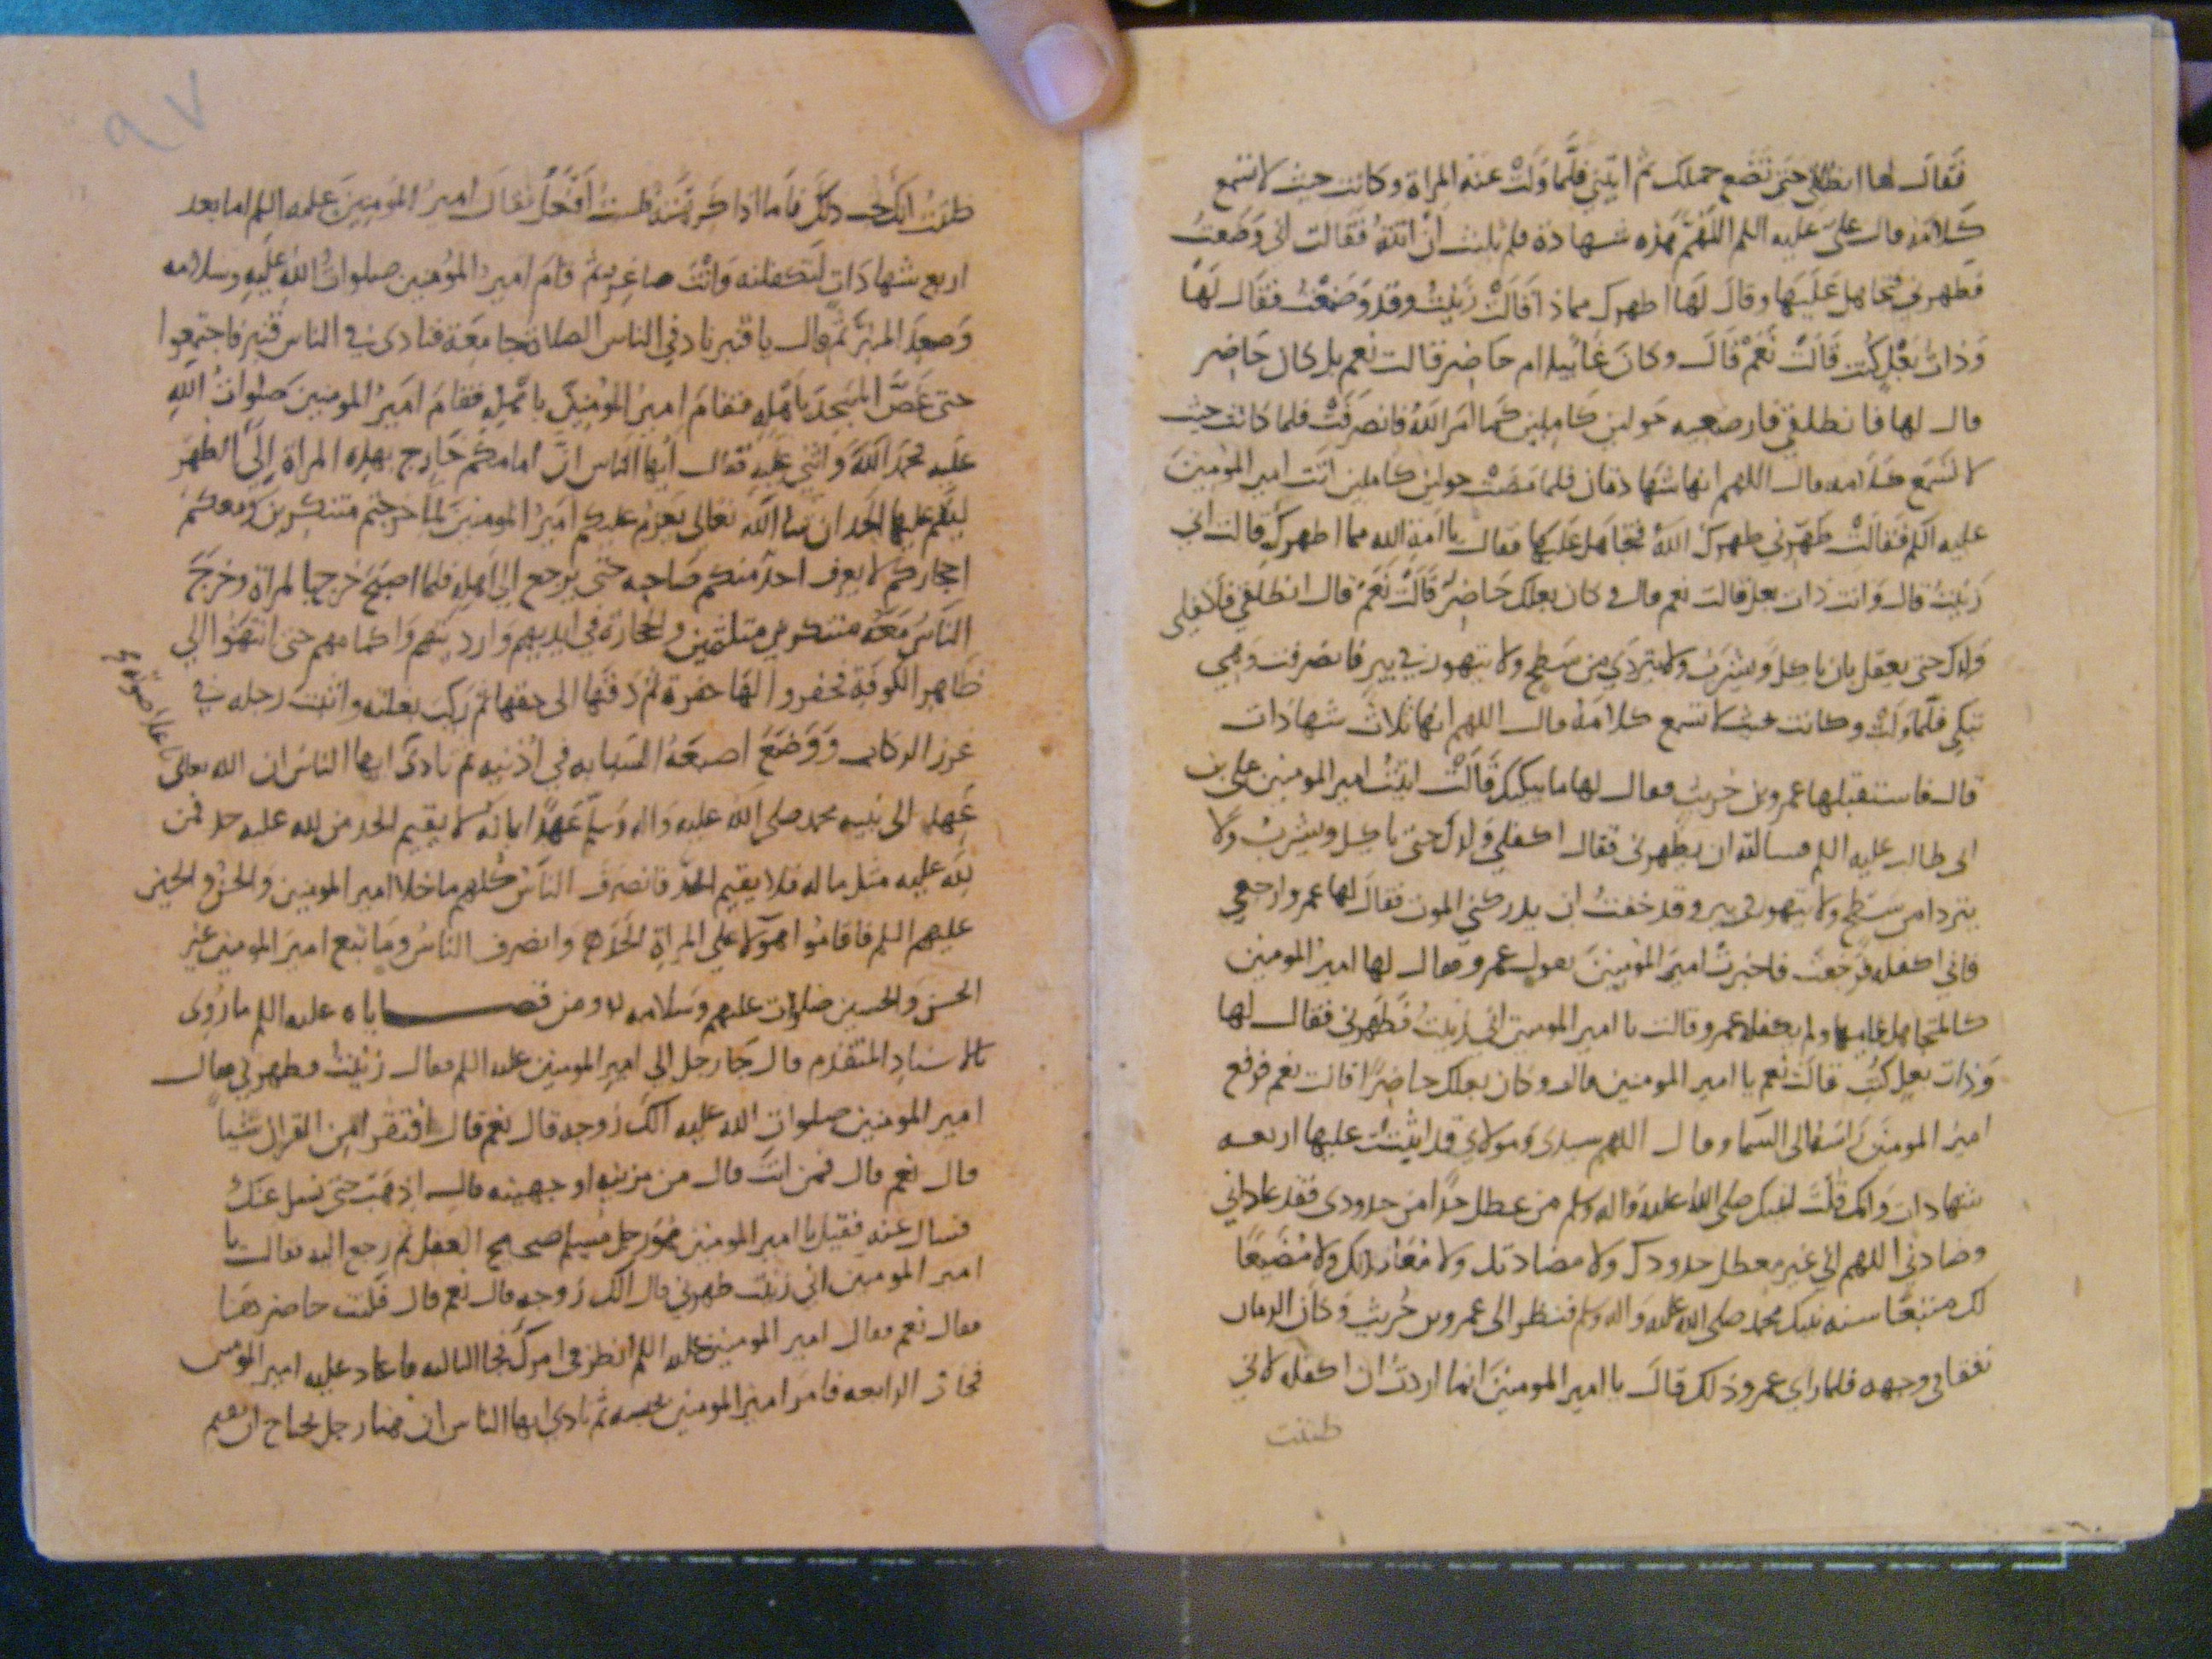 فَقَالَ لها انطلقي حتى تَضَعي حملك ثم ايتيني فلَّما وَلَّتْ عنه المراة وكانت حيث لا تسمع
كَلامَه قال عليّ عليه السلم اللهمّ هذه شهادة فلم تلبث ان اتته فقالت اني وضعتُ
فطهرني فتجاهل عَلَيها وقالَ لَها اطهرك مماذا قَالَتْ زَنيتُ وقد وَضَعْتُ فقال لَها
وَذاتُ بَعْلٍ كنتِ قَالَتْ نَعَمْ قَالَ وكانَ غائبا ام حَاضِر قالت نعم بل كان حَاضِر
قال لها فانطلقي فارضعيه حَولين كامِلين كَما امَرَ اللهُ فانصرفَتْ فلما كانت حيث
لا تسمع كلامه قال اللهم انها شهادتان فلما مَضَتْ حولين كاملين اتَت امير المومنين
عليه السلم فقالَتْ طَهِّرني طهرك اللهُ فتجاهل عَليها فقال يا امَة الله مما اطهركِ قالت اني
زَنيتُ قال وَانت ذات بعل قالت نعم قال وكان بعلك حَاضِرٌ قَالَتْ نَعَمْ قال انطلقي فاكفلي
وَلدك حتى يعقل بان ياكل وَيشْرَب ولا يتردّي من سَطح ولا يتهور في بير فانصرفت وَهي
تبكي فلَّما وَلّتْ وكانت حيث لا تسمع كلامَهُ قال اللهم انها ثلاث شهادات
قال فاستقبلها عمرو بن حُريث فقال لها ما يبكيك قَالَتْ اتيْتُ امير المومنين علي بن
ابي طالب عليه السلم فسالته ان يطهرني فقال اكفلي وَلدك حتى ياكل ويشربُ ولا
يتردا من سَطح ولا يتهور في بير وقد خفتُ ان يدركني الموت فقالَ لها عمرو ارجعي
فاني اكفله فرَجعت فاخبرتْ اميرَ المومنينَ بقول عمرو فقال لها اميرُ المومنين
كالمتجاهل عليها ولم يكفله عمرو قالت يا امير المومنين اني زنيتُ فَطَهِّرني فقال لها
وَذات بعلٍ كُنتِ قالَت نَعم يا امير المومنين قال وكان بعلك حاضِرًا قالت نعم فرفع
اميرُ المومنينَ رَاسَه الى السَّما وقال اللهم سيدي وَمولاي قد اثبتت عليها اربعه
شهادات وَانك قلتَ لنبيك صلى اللهُ عليه وَاله وسلم من عطل حدًا من حدودي فقد عاداني
وضادني اللهم اني غير معطل حدودك ولا مضاد لك ولا مُعَانِد لك ولا مُضَيعًا
لك متبعًا سنه نبيك محمد صلى الله عليه وَاله وسلم فنظر الى عمرو بن حُريث وَكان الرمان
تفقا في وجهه فلما راي عمرو ذلك قالَ يا امير المومنينَ انما اردتُ ان اكفله لاني
ظننت
٩٧
ظننتُ انكَ تحب ذلكَ فاَما اذا كَرِهْتَه فلستُ اَفْعَلُ فقالَ اميرُ المُومِنينَ عليه السلم اما بعد
اربع شهادات لَتكفلنه وَانْتَ صاغِر ثمّ قامَ اميرُ المؤمنين صلواتُ الله عَليهِ وسلامه
وَصعِدَ المنبَر ثمّ قال يا قنبر ناد في الناس الصلاة جامعَة فنادى في الناس قنبر فاجتمعوا
حتى غَصَّ المسجدَ باَهْلهِ فقامَ اميرُ المُومِنينَ باَهلهِ فقامَ اَميرُ المومنين صَلواتُ اللهِ
عَلَيه فحَمدَ اللهَ وَاثني عَليهِ فَقال اَيُّها النَّاسِ انَّ اِمامكم خَارِج بهذِه المراةِ اِلَى الظَّهرَ
ليُقيم عليها الحَد ان شا اللهَ تَعالى يَعزِم عليكم اَميرُ المومنينَ لما خرجتم متنكرين وَمعَكم
احجاركم لا يعرف احدٌ منكم صَاحِبه حتى يَرجع الي اَهله فلما اصبَحَ خَرجَ بالمراةِ وخرجَ
النَّاسُ مَعَهُ متنكرين متلثمين والحجارَةِ في ايديهم وَارديتهم وَاكمامهم حتى انتهَوْا الي
ظاهر الكوفة فحفروا لهَا حفرة ثمّ دَفنَها الى حقْوها ثم رَكِبَ بغلتهِ واثبتَ رجله في
غَرز الركاب ووَضَعَ اصبعَه السبابه في اذنيه ثم نادَى ايها الناسُ ان الله تعالى
باعلا صوته
عَهِد الى نبيه محمد صلى اللهَ عليه وَاله وَسلم عَهدًا بانه لا يقيم الحد من لله عليه حد فمن
للهَ عليه مثل ما له فلا يقيم الحد فانصرفَ الناسُ كلهم ما خلا امير المومنين والحسنُ والحسين
عليهم السلم فاقاموا هَوُلا على المراةِ الحَدَ وانصرف الناسُ وما تبع اميرَ المومنين غير
الحسن والحسين صلوات عليهم وسَلامه ومن قضاياه عليه السلم ما رُوِيَ
بالاسنادِ المتقدم قال جَا رجل الى اميرِ المومنين عليه السلم فقال زنيتُ فطهرني فقال
امير المومنين صلوات الله عليه الكَ زوجه قال نعم قال افتقرا من القران شَيا
قال نعم قال فممن انتَ قال من مزينه او جهينه قال اِذهَبْ حتى نسل عنكَ
فسال عنه فقيل يا امير المومنين هُوَ رجل مُسلم صحيح العقل ثم رجع اليه فقالَ يا
امير المومنين اني زنيت طهرني قال الك زوجه قال نعم قال فكنت حاضرها
فقال نعم فقال امير المومنين عليه السلم انظر في امرك فجا الثالثه فاعاد عليه امير المومنين
فجا في الرابعه فامَر امير المومنين بحبسه ثم نادي ايها الناس ان هذا رجل يحتاج ان نقيم